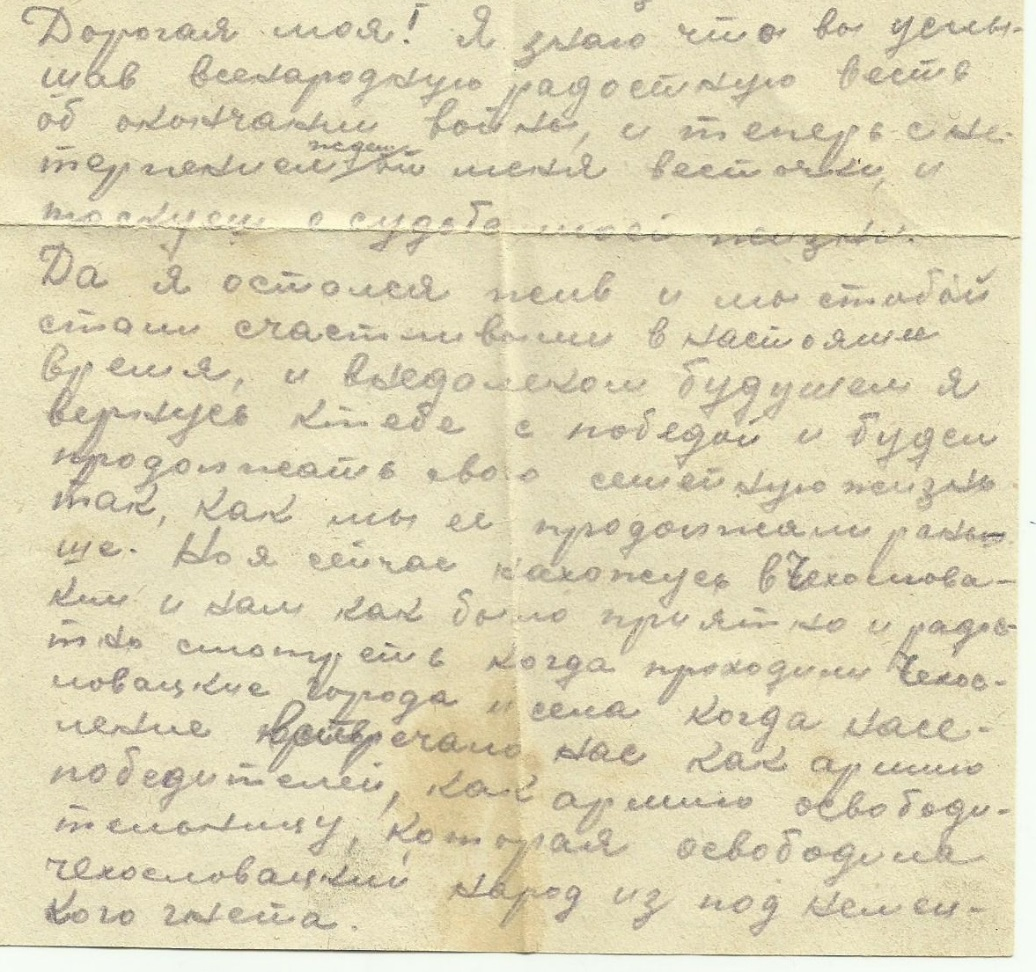 Дорогая моя! Я знаю что вы услы-
шав всенародную радостную весть
об окончании войны, и теперь с не-
терпением ждеш от меня весточки, и
тоскуеш о судьбе моей жизни.
Да я остался жив и мы стобой
стали счастливыми в настояшие
время, и внедалеком будушем я
вернусь ктебе с победой и будем
продолжать свою семейную жизнь
так, как мы ее продолжали рань-
ше. Но я сейчас нахожусь в Чехослова-
кии и нам как было приятно и радос-
тно смотреть когда проходили Чехос-
ловацкие города и села когда насе-
ление встречало нас как армию
победителей, как армию освободи-
тельницу, которая освободила
чехословацкий народ из под немец-
кого гнета.